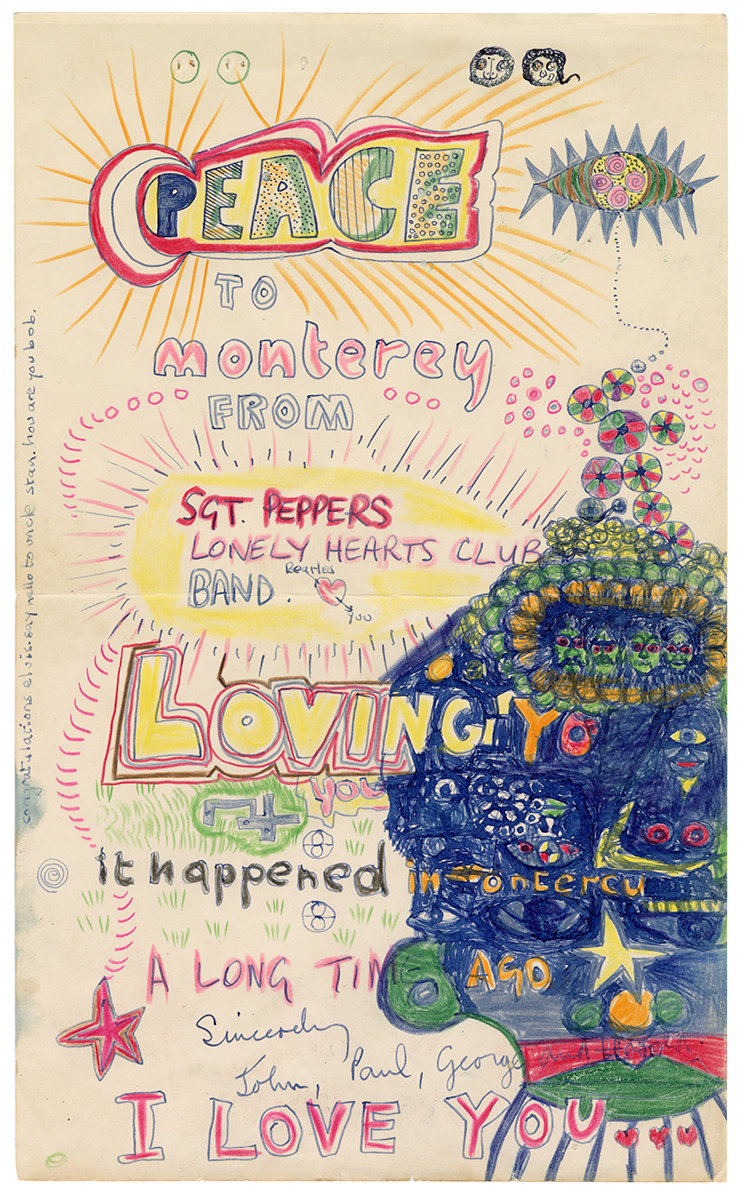 PEACE
TO
monterey
FROM
SGT. PEPPERS
LONELY HEARTS CLUB
BAND.
Beatles
You
LOVING YO
you
it happened in monterey
A LONG TIME AGO
Sincerely
John, Paul, George and
I LOVE YOU...
congratulations elvis. say hello to uncle stan. how are you bob.